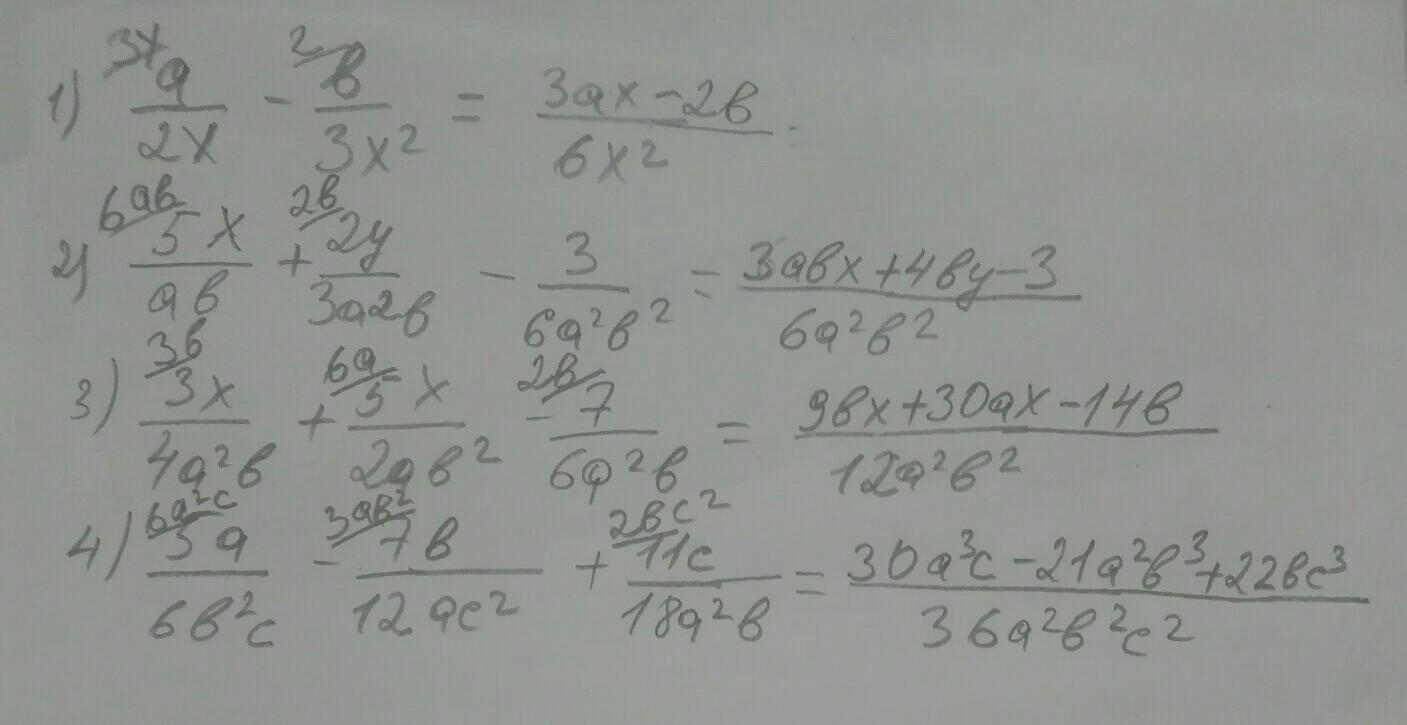 1) 3x/ a/2x - 2/ в/3x² = (3ax-2в)/6x².
2) 6aв/ 5x/aв + 2в/ 2y/3a2в - 3/6a²в² = (3aвx+4вy-3)/6a²в²
3) 3в/ 3x/4a²в + 6a/ 5x/2aв² - 2в/ 7/6a²в = (9вx+30ax-14в)/12a²в²
4) 6a²c/ 5a/6в²c - 3aв²/ 7в/12ac² + 2вc²/ 11c/18a²в = (30a³c-21a²в³+22вc³)/36a²в²c²